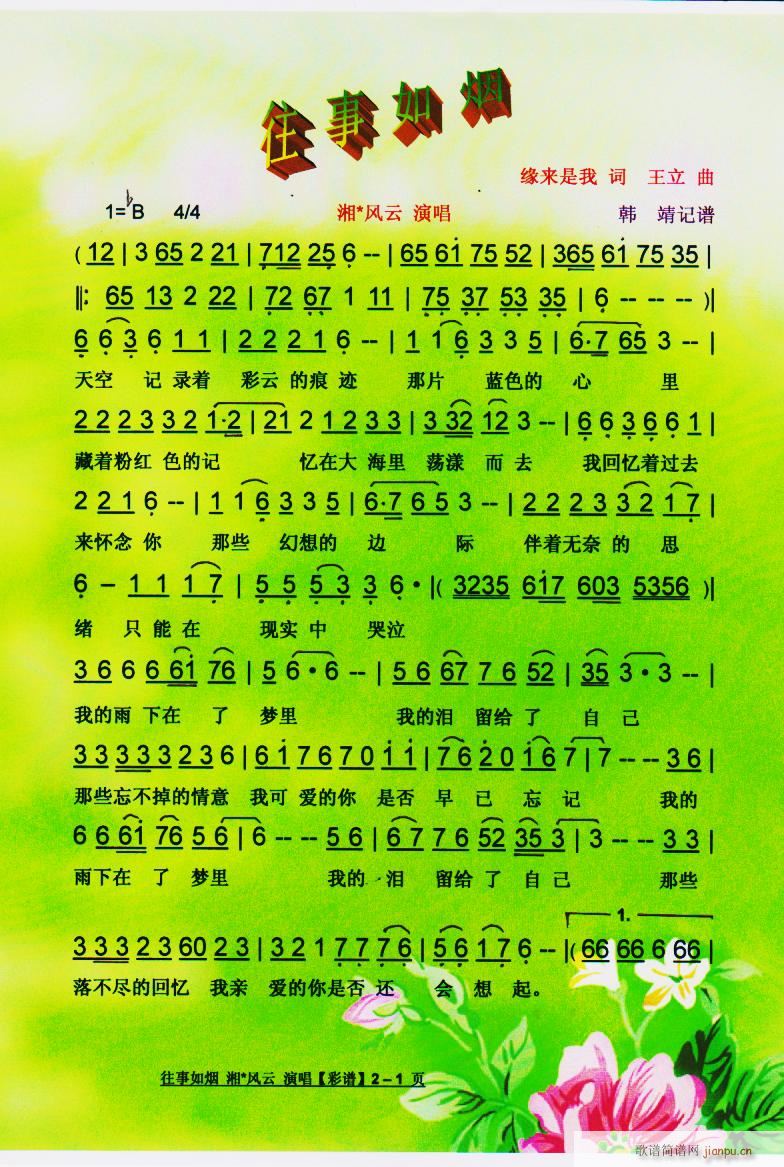 往事如烟
缘来是我 词 王立 曲
1=♭B 4/4 湘*风云 演唱 韩 靖记谱
( 12 | 3 65 2 21 | 712 25 6 -- | 65 61 75 52 | 365 61 75 35 |
‖: 65 13 2 22 | 72 67 1 11 | 75 37 53 35 | 6 -- -- )|
6 6 3 6 1 1 | 2 2 2 1 6 -- | 1 1 6 3 3 5 | 6·7 65 3 -- |
天空 记 录着 彩云 的痕 迹 那片 蓝色的 心 里
2 2 2 3 3 2 1·2 | 21 2 1 2 3 3 | 3 32 12 3 -- | 6 6 3 6 6 1 |
藏着粉红 色的记 忆在大 海里 荡漾 而去 我回忆着过去
2 2 1 6 -- | 1 1 6 3 3 5 | 6·7 6 5 3 -- | 2 2 2 3 3 2 1 7 |
来怀念 你 那些 幻想的 边 际 伴着无奈 的 思
6 – 1 1 1 7 | 5 5 5 3 3 6 · |( 3235 617 603 5356 )|
绪 只能 在 现实 中 哭泣
3 6 6 6 61 76 | 5 6 · 6 -- | 5 6 67 7 6 52 | 35 3 · 3 -- |
我的雨 下在 了 梦里 我的泪 留给 了 自 己
3 3 3 3 3 2 3 6 | 6 1 7 6 7 0 1 1 | 7 6 2 0 1 6 7 | 7 -- -- 3 6 |
那些忘不掉的情意 我可 爱的你 是否 早 已 忘 记 我的
6 6 61 76 5 6 | 6 -- -- 5 6 | 6 7 7 6 52 35 3 | 3 -- 3 3 |
雨下在 了 梦里 我的 泪 留给 了 自 己 那些
3 3 3 2 3 60 2 3 | 3 2 1 7 7 7 6 | 5 6 1 7 6 -- |( 66 66 6 66 | 1.
落不尽的回忆 我亲 爱的你是否 还 会 想 起。
往事如烟 湘*风云 演唱【彩谱】2－1 页
歌谱简谱网 jianpu.cn